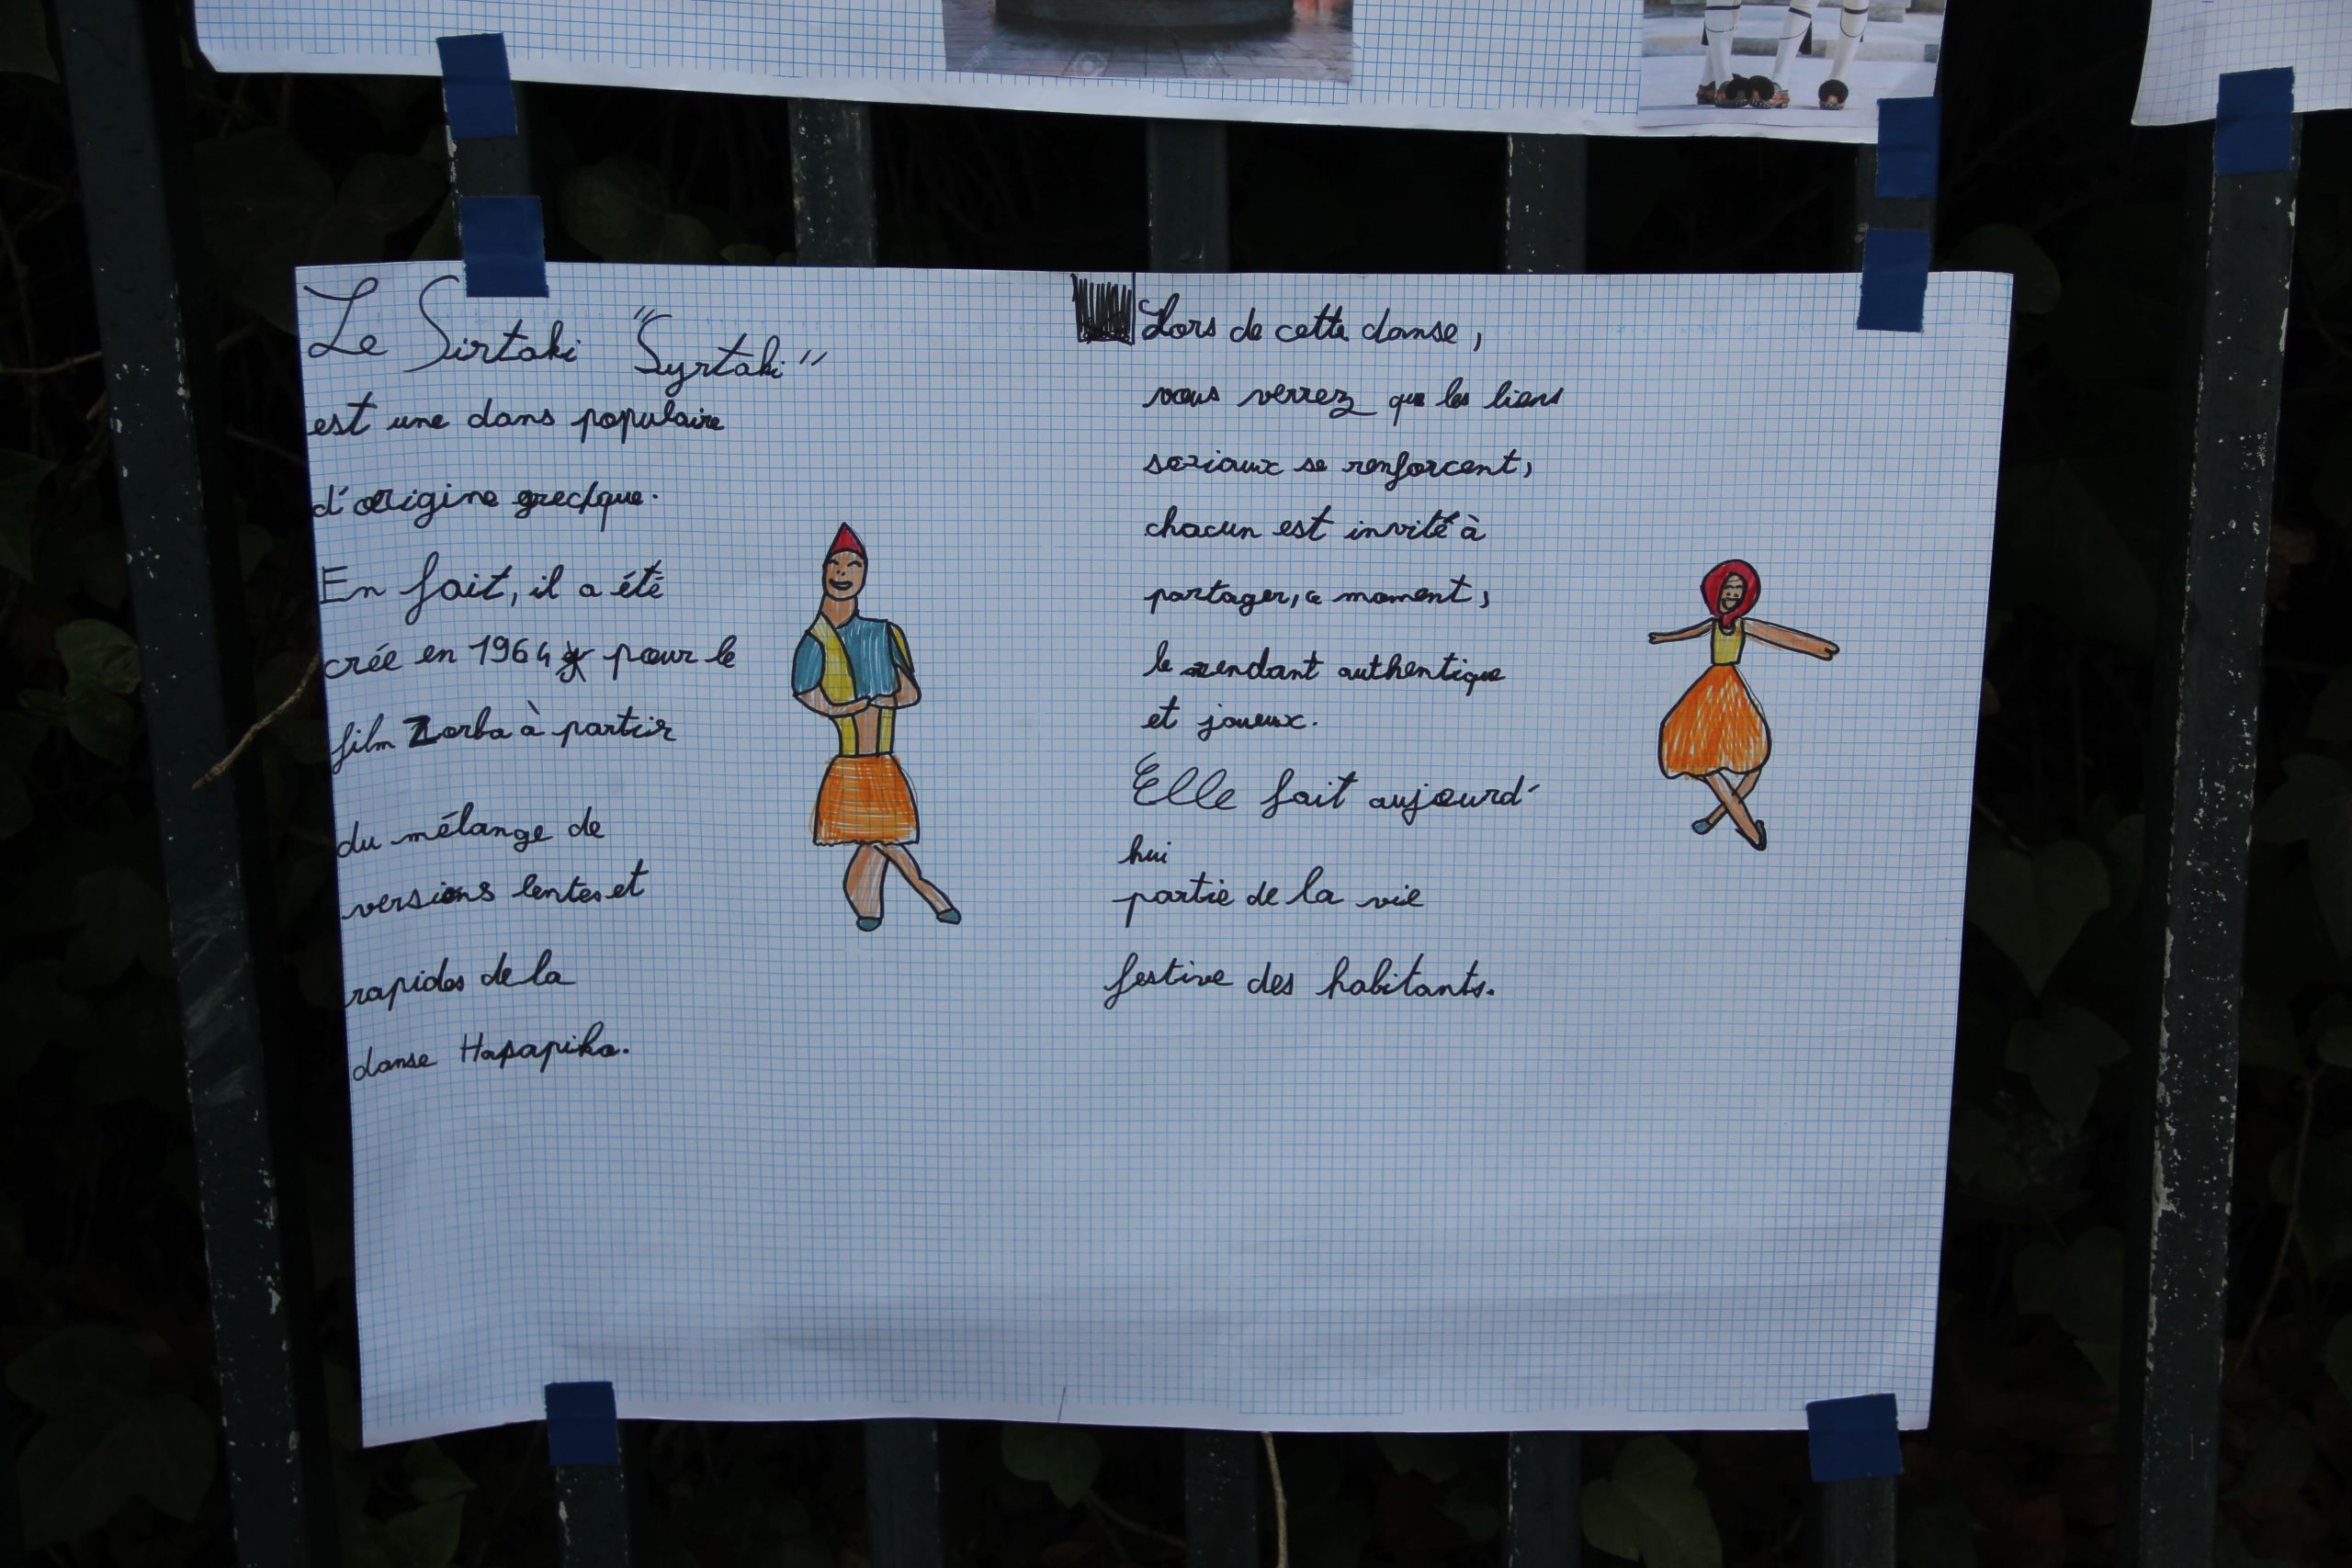 Le Sirtaki "Syrtaki"
est une dans populaire
d'origine grecque.
En fait, il a été
crée en 1964 pour le
film Zorba à partir
du mélange de
versions lentes et
rapides de la
danse Hasapiko.
Lors de cette danse,
vous verrez que les liens
soziaux se renforcent,
chacun est invité à
partager, ce moment,
le rendant authentique
et joueux.
Elle fait aujourd'
hui
partie de la vie
festive des habitants.